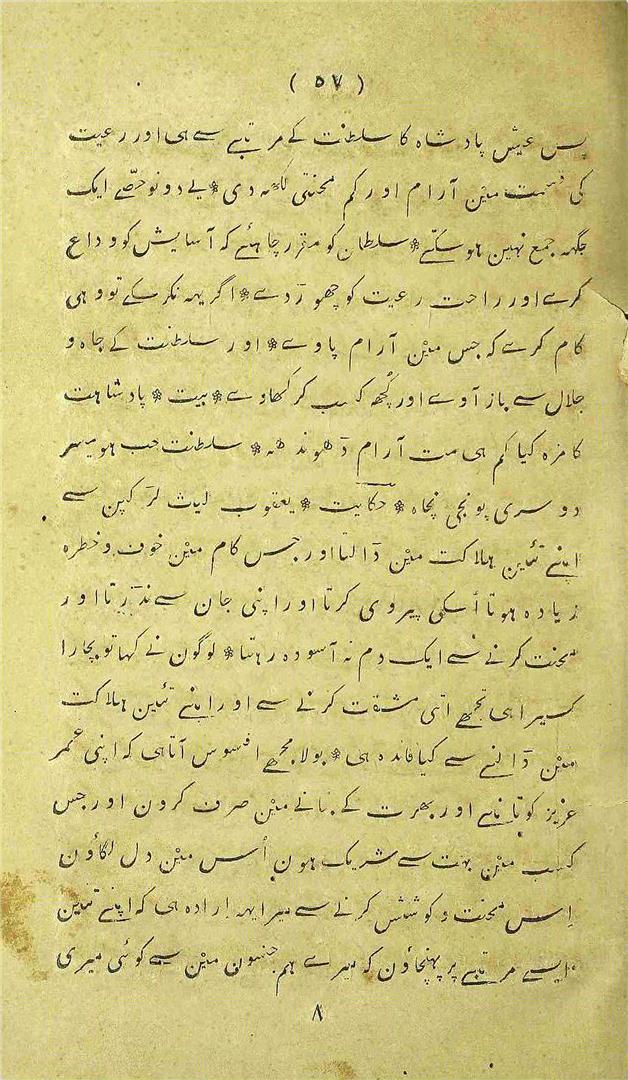 ( ٥٧ )
پس عیش پادشاہ کا سلطنت کے مرتبے سے ہی اور رعیت
کی قسمت میں آرام اور کم محنتی لکھ دی * یے دونو حصّے ایک
جگہہ جمع نہین ہو سکتے * سلطان کو مقرر چاہئے کہ آسایش کو وداع
کرے اور راحت رعیت کو چھوڑ دے * اگر یہہ نکر سکے تو وہی
کام کرے کہ جس مین آرام پاوے * اور سلطنت کے جاہ و
جلال سے باز آوے اور کُچھ کسب کر کھاوے * بیت * پادشاہت
کا مزہ کیا کم ہی مت آرام ڈھونڈھہ * سلطنت جب ہو میسر
دوسری پونجی نچاہ * حکایت * یعقوب لیث لڑکپن سے
اپنے تئین ہلاکت مین ڈالتا اور جس کام مین خوف و خطرہ
زیادہ ہوتا اُسکی پیروی کرتا اور اپنی جان سے ندڑتا اور
محنت کرنے سے ایک دم نہ آسودہ رہتا * لوگون نے کہا تو بچارا
کسیرا ہی تجھے اتی مشقت کرنے سے اور اپنے تئین ہلاکت
مین ڈالنے سے کیا فائدہ ہی * بولا مجھے افسوس آتا ہی کہ اپنی عمر
عزیز کو تانبے اور بھرت کے بنانے مین صرف کرون اور جس
کسب مین بہت سے شریک ہون اُس مین دل لگاؤن
اِس محنت و کوشش کرنے سے میرا یہہ ارادہ ہی کہ اپنے تئین
ایسے مرتبے پر پہنچاؤن کہ میرے ہم جنسون مین سے کوئی میری
٨